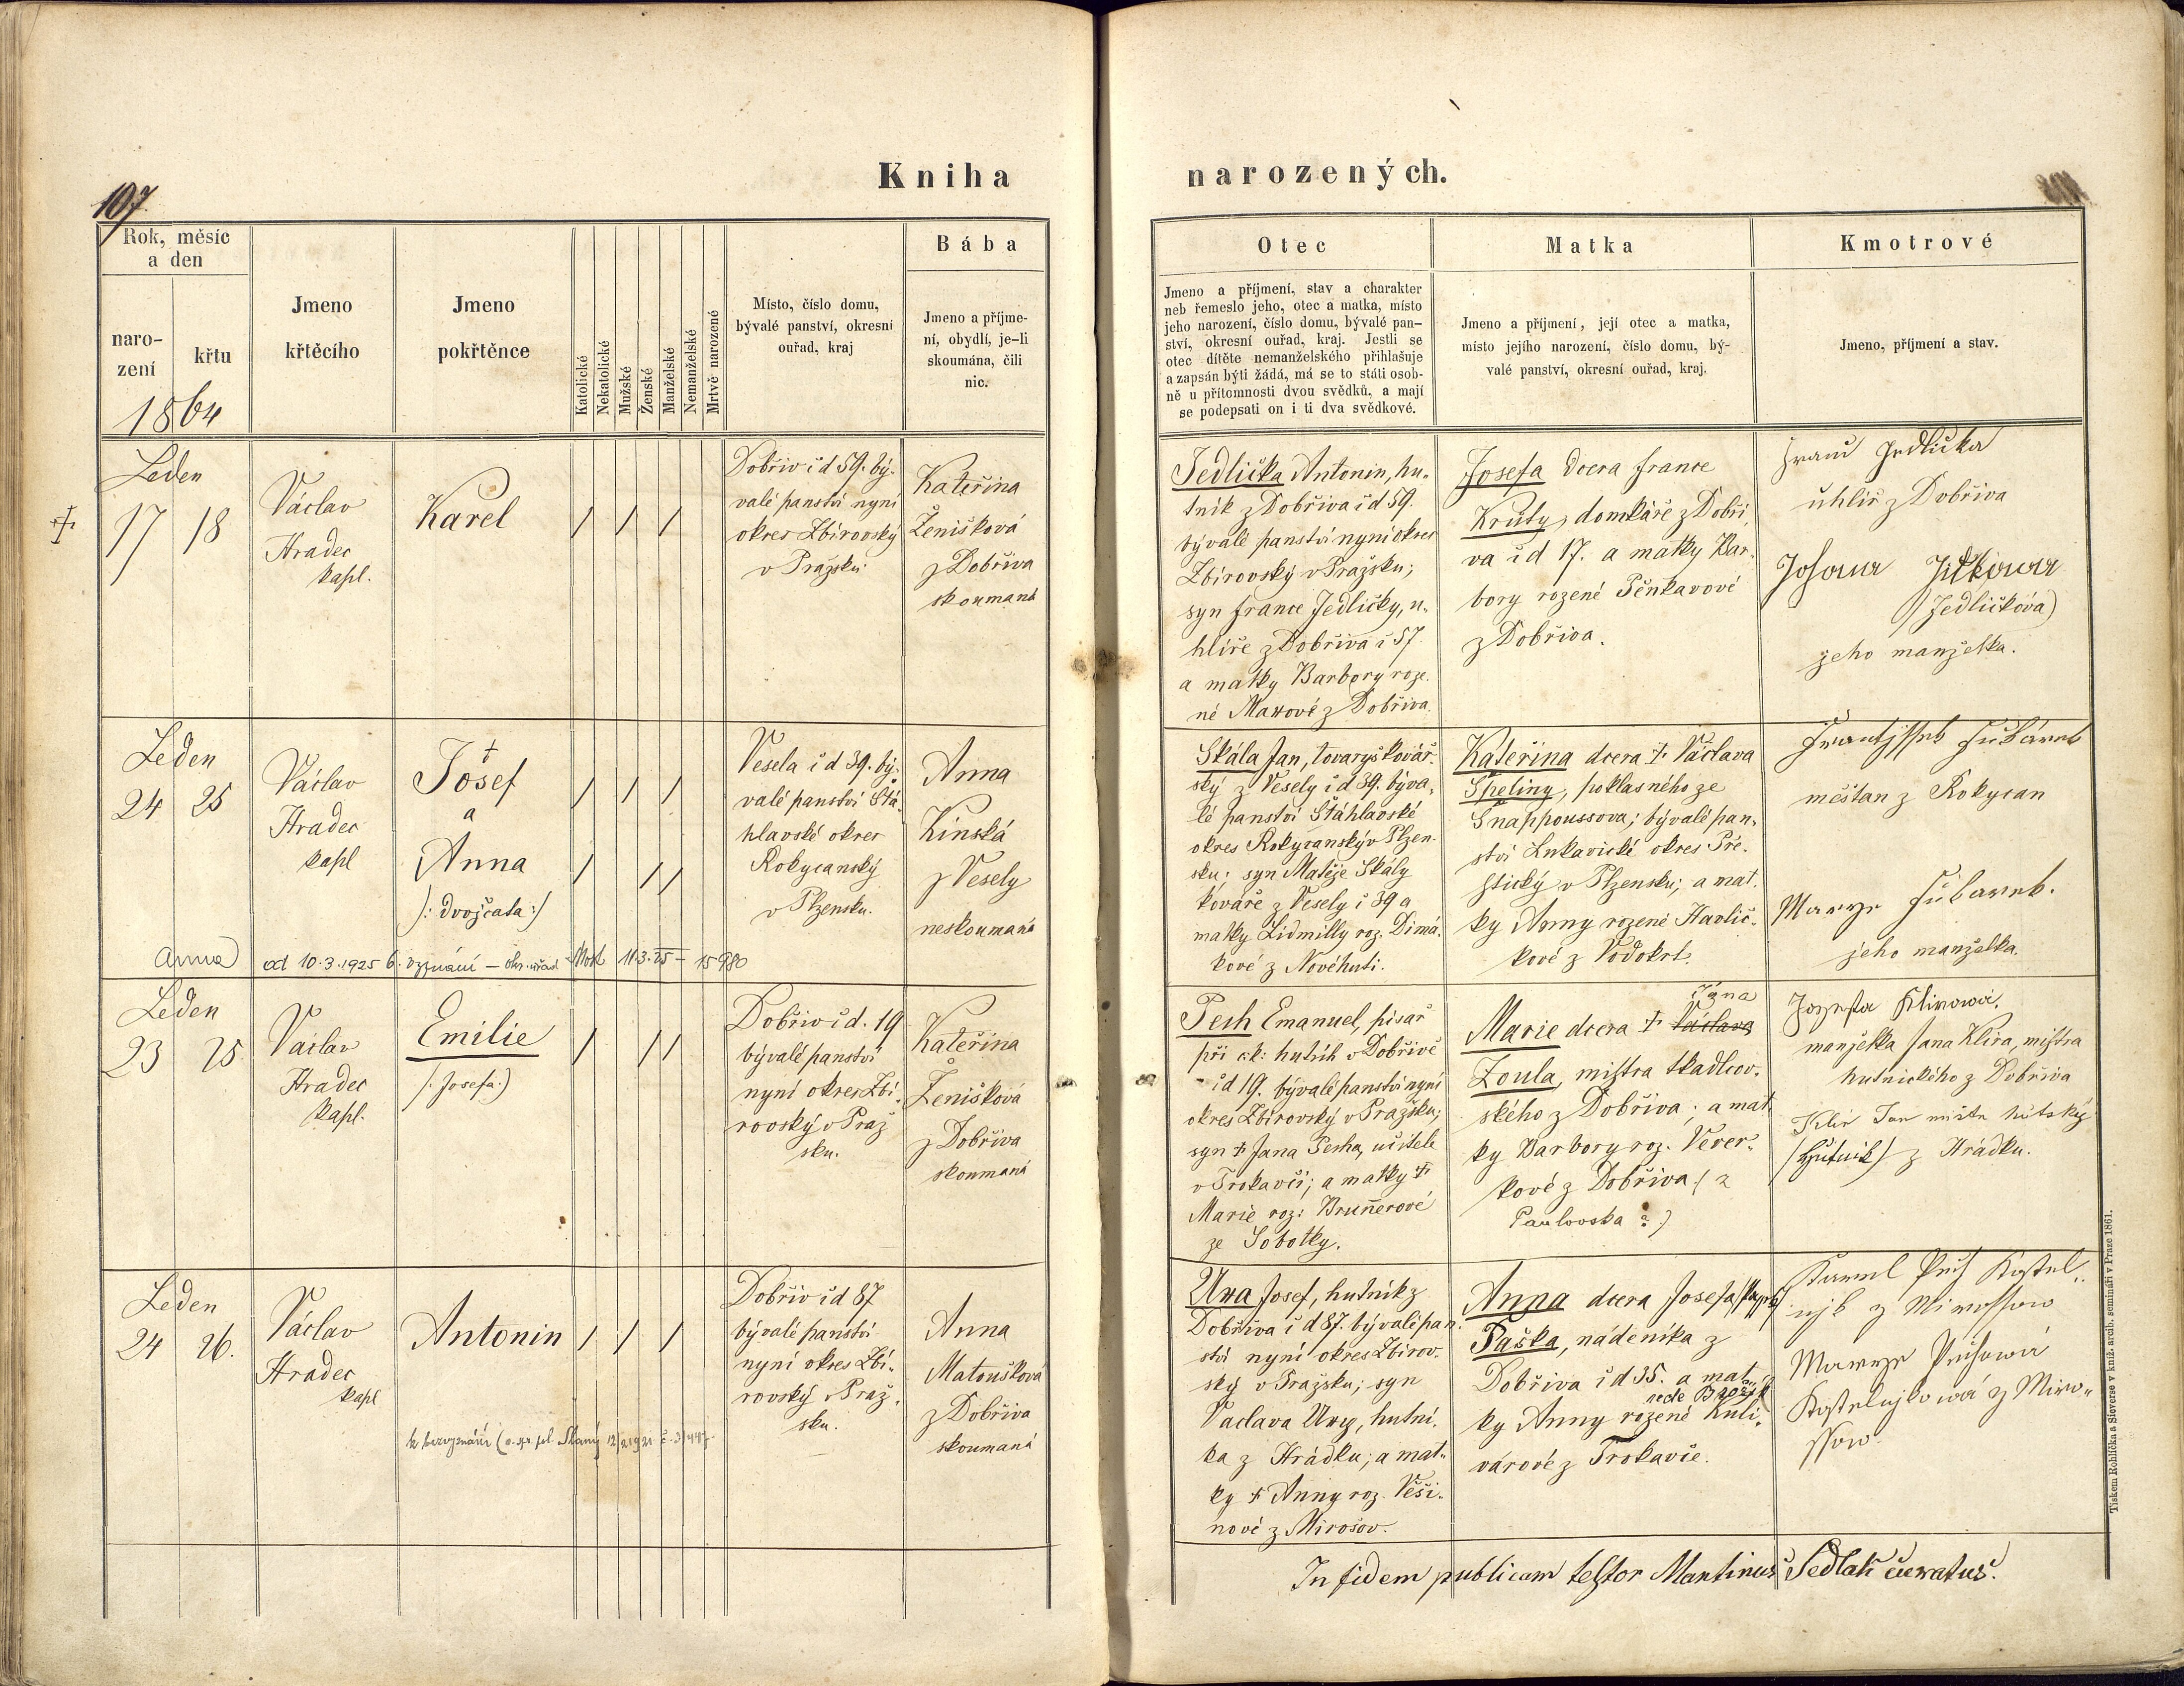 Kniha narozených.
107.
Rok, měsíc
a den
naro-
zení
křtu
1864
Jmeno
křtěcího
Jmeno
pokřtěnce
Katolické
Nekatolické
Mužské
Ženské
Manželské
Nemanželské
Mrtvě narozené
Místo, číslo domu,
bývalé panství, okresní
ouřad, kraj
Bába
Jmeno a příjme-
ní, obydlí, je-li
skoumána, čili
nic.
Otec
Jmeno a příjmení, stav a charakter
neb řemeslo jeho, otec a matka, místo
jeho narození, číslo domu, bývalé pan-
ství, okresní ouřad, kraj. Jestli se
otec dítěte nemanželského přihlašuje
a zapsán býti žádá, má se to státi osob-
ně u přítomnosti dvou svědků, a mají
se podepsati on i ti dva svědkové.
Matka
Jmeno a příjmení, její otec a matka,
místo jejího narození, číslo domu, bý-
valé panství, okresní ouřad, kraj.
Kmotrové
Jmeno, příjmení a stav.
Leden
17 18
Václav
Hradec
kapl.
Karel
/ / /
Dobřiv č d 59. bý-
valé panství nyní
okres Zbirovský
v Pražsku
Kateřina
Ženíšková
z Dobřiva
skoumaná
Jedlička Antonin, hu-
tník z Dobřiva č d 59.
bývalé panství nyní okres
Zbirovský v Pražsku;
syn France Jedličky, u-
hlíře z Dobřiva č 57.
a matky Barbory roze-
né Maxové z Dobřiva.
Josefa dcera France
Kruty, domkáře z Dobři-
va č d 17. a matky Bar-
bory rozené Pěnkavové
z Dobřiva.
Franc Jedlička
uhlíř z Dobřiva
(Jedličkova)
jeho manželka.
Leden
24 25
Václav
Hradec
kapl
†
Josef
a
Anna
/: dvojčata :/
/ / /
/ / /
Vesela č d 39. bý-
valé panství Štá-
hlavské okres
Rokycanský
v Plzensku.
Anna
Kinská
z Vesely
neskoumaná
Skála Jan, tovaryš kovář-
ský z Vesely č d 39. býva-
lé panství Štáhlavské
okres Rokycanský v Plzen-
sku; syn Matěje Skály
kováře z Vesely č 39 a
matky Lidmilly roz. Dimá-
kové z Nové huti.
Kateřina dcera † Václava
Špeliny, poklasného ze
Šnappoussova; bývalé pan-
ství Lukavické okres Pře-
štický v Plzensku; a mat-
ky Anny rozené Havlíč-
kové z Vodokrt.
měšťan z Rokycan
jeho manželka.
Anna od 10.3.1925 b. vyznání – okr. úřad Most 11.3.25 – 15980
Leden
23 25
Václav
Hradec
kapl.
Emilie
(: Josefa :)
/ / /
Dobřiv č d. 19
bývalé panství
nyní okres Zbi-
rovský v Praž
sku.
Kateřina
Ženíšková
z Dobřiva
skoumaná
Pech Emanuel, písař
při ck: hutích v Dobřivě
č d 19. bývalé panství nyní
okres Zbirovský v Pražsku;
syn † Jana Pecha, učitele
v Trokavči; a matky †
Marie roz: Brunnerové
ze Sobotky.
Jana
Marie dcera † Václava
Zoula, mistra tkadlcov-
ského z Dobřiva; a mat-
ky Barbory roz. Vever-
kové z Dobřiva (z
Pavlovska ?)
Jozefa Klirowá,
manželka Jana Klíra, mistra
hutnického z Dobřiva
Klír Jan
(Hutník) z Hrádku.
Leden
24 26.
Václav
Hradec
kapl
Antonin
/ / /
Dobřiv č d 87
bývalé panství
nyní okres Zbi-
rovský v Praž-
sku.
Anna
Matoušková
z Dobřiva
skoumaná
Uxa Josef, hutník z
Dobřiva č d 87. bývalé pan-
ství nyní okres Zbirov-
ský v Pražsku; syn
Vaclava Uxy, hutní-
ka z Hrádku; a mat-
ky † Anny roz. Věši-
nové z Mirošov.
Anna dcera Josefa
Paška, nádeníka z
Dobřiva č d 35. a mat-
ky Anny rozené Kuli-
várové z Trokavče.
In fidem publicam testor Martinus Sedlak curatus.
Tiskem Rohlíčka a Sieverse v kníž. arcib. semináři v Praze 1861.